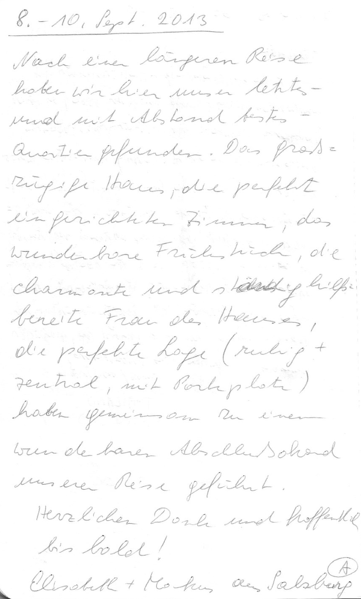 8. - 10. Sept. 2013
Nach einer längeren Reise
haben wir hier unser letztes -
und mit Abstand bestes -
Quartier gefunden. Das groß-
zügige Haus, die perfekt
eingerichteten Zimmer, das
wunderbare Frühstück, die
charmante und ständig hilfs-
bereite Frau des Hauses,
die perfekte Lage (ruhig +
zentral, mit Parkplatz)
haben gemeinsam zu einem
wunderbaren
unserer Reise geführt.
Herzlichen Dank und hoffentlich
bis bald!
Elisabeth + Markus aus Salzburg
A